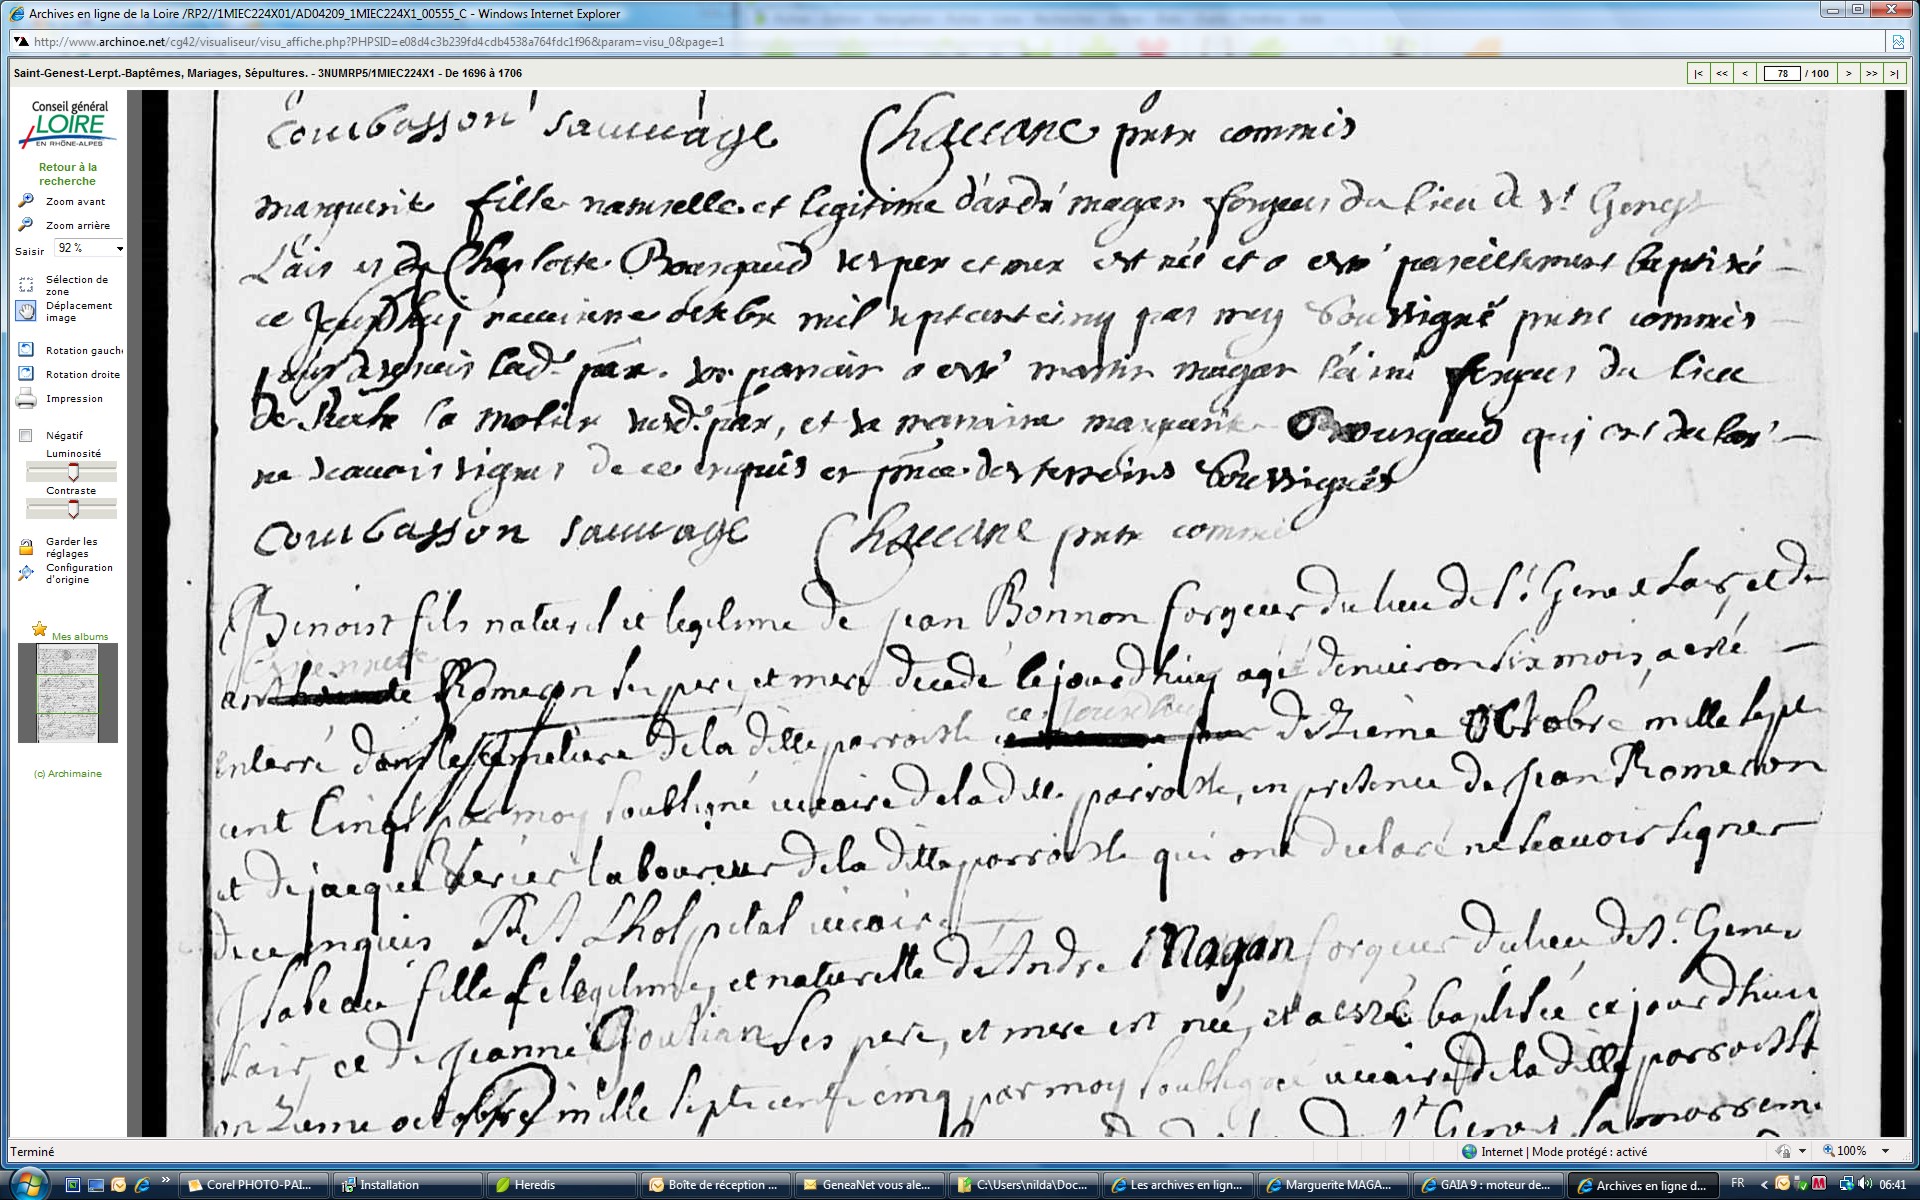 Archives en ligne de la Loire /RP2//1MIEC224X01/AD04209_1MIEC224X1_00555_C - Windows Internet Explorer
http://www.archinoe.net/cg42/visualiseur/visu_affiche.php?PHPSID=e08d4c3b239fd4cdb4538a764fdc1f96&param=visu_0&page=1
Saint-Genest-Lerpt.-Baptêmes, Mariages, Sépultures. - 3NUMRP5/1MIEC224X1 - De 1696 à 1706
|< << < 78 / 100 > >> >|
Conseil général
LOIRE
EN RHÔNE-ALPES
Retour à la
recherche
Zoom avant
Zoom arrière
Saisir 92 %
Sélection de
zone
Déplacement
image
Rotation gauch
Rotation droite
Impression
Négatif
Luminosité
Contraste
Garder les
réglages
Configuration
d'origine
Mes albums
(c) Archimaine
Coulbasson sauuage Chaleane pretre commis
marguerite fille naturelle et legitime d'andré magan forgeur du lieu de st Genest
Lair et de Charlotte Bourgaud ses pere et mere est née et a esté pareillement baptisée
ce jourd'huy neuvieme octobre mil sept cent cinq par moy soussigné pretre commis
par. son parrain a esté martin magan forgeur du lieu
de et sa marraine marguerite Bourgaud qui ont declaré
ne scavoir signer de ce enquis en pnce des tesmoins soussignés
Coulbasson sauuage Chaleane pretre commis
Benoist fils naturel et legitime de jean Bonnon forgeur du lieu de st Genest Lair, et de
Romeron ses pere, et mere decedé le jourdhuy agé denuiron six mois, a esté
enterré dans le semetiere de la ditte parroisse ce jourdhuy dizieme octobre mille sept
cent cinq par moy soubsigné uicaire de la ditte parroisse, en presence de jean Romeron
et de jacque laboureur de la ditte parroisse qui ont declaré ne scauoir signer
de ce enquis Lhospital uicaire
Isabeau fille legitime, et naturelle d'Andre Magan forgeur du lieu de st. Genes
Lair, et de jeanne Goutian ses pere, et mere est née, et a esté baptisée ce jourdhuy
onzieme octobre mille sept cent cinq par moy soubsigné uicaire de la ditte parroisse
Terminé
Internet | Mode protégé : activé
100%
Corel PHOTO-PAI... Installation Heredis Boîte de réception ... GeneaNet vous ale... C:\Users\nilda\Doc... Les archives en lign... Marguerite MAGA... GAIA 9 : moteur de... Archives en ligne d... FR 06:41